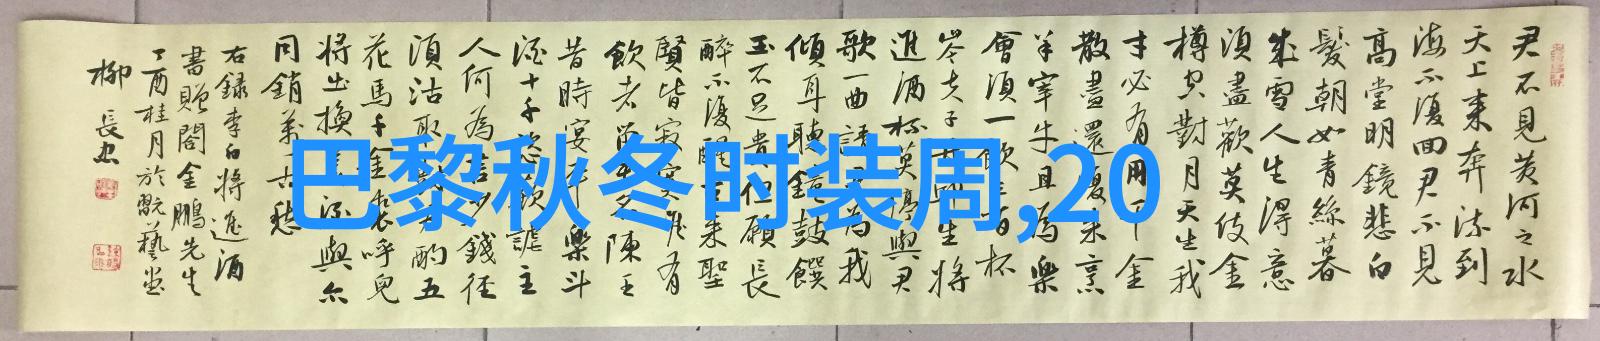 君不見黄河之水
天上来奔流到
海不復回君不見
高堂明鏡悲白
髮朝如青絲暮
成雪人生得意
須盡歡莫使金
樽空對月天生我
才必有用千金
散盡還復来烹
羊宰牛且為樂
會須一飲三百杯
岑夫子丹丘生將
進酒杯莫停與君
歌一曲請君為我
傾耳聽鐘鼓饌
玉不足貴但願長
醉不復醒来聖
賢皆寂寞唯有
飲者留名陳王
昔時宴平樂斗
酒十千恣歡謔主
人何為言少錢徑
須沽取君酌五
花馬千金裘呼兒
將出換酒與尔
同銷萬古愁
右録李白將進酒
書贈閻金鵬先生
丁酉桂月於翫藝堂
柳長忠
巴黎秋冬时装周,20